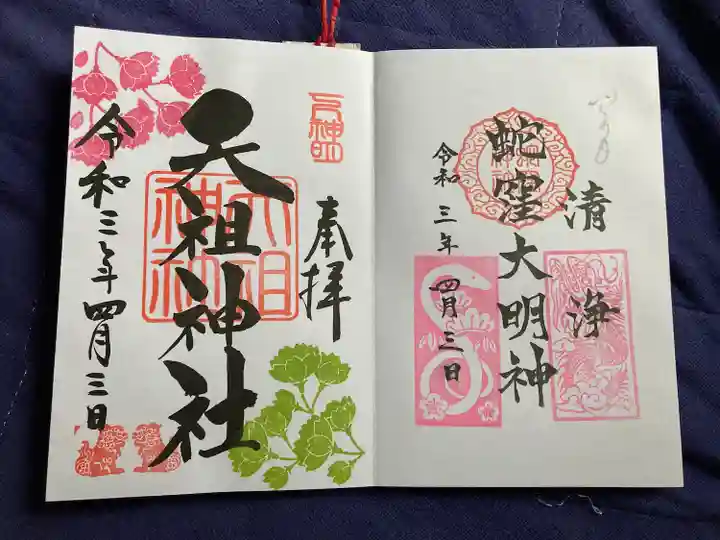 清浄
蛇窪大明神
令和三年四月三日
奉拝
天祖神社
令和三年四月三日
天祖
神社